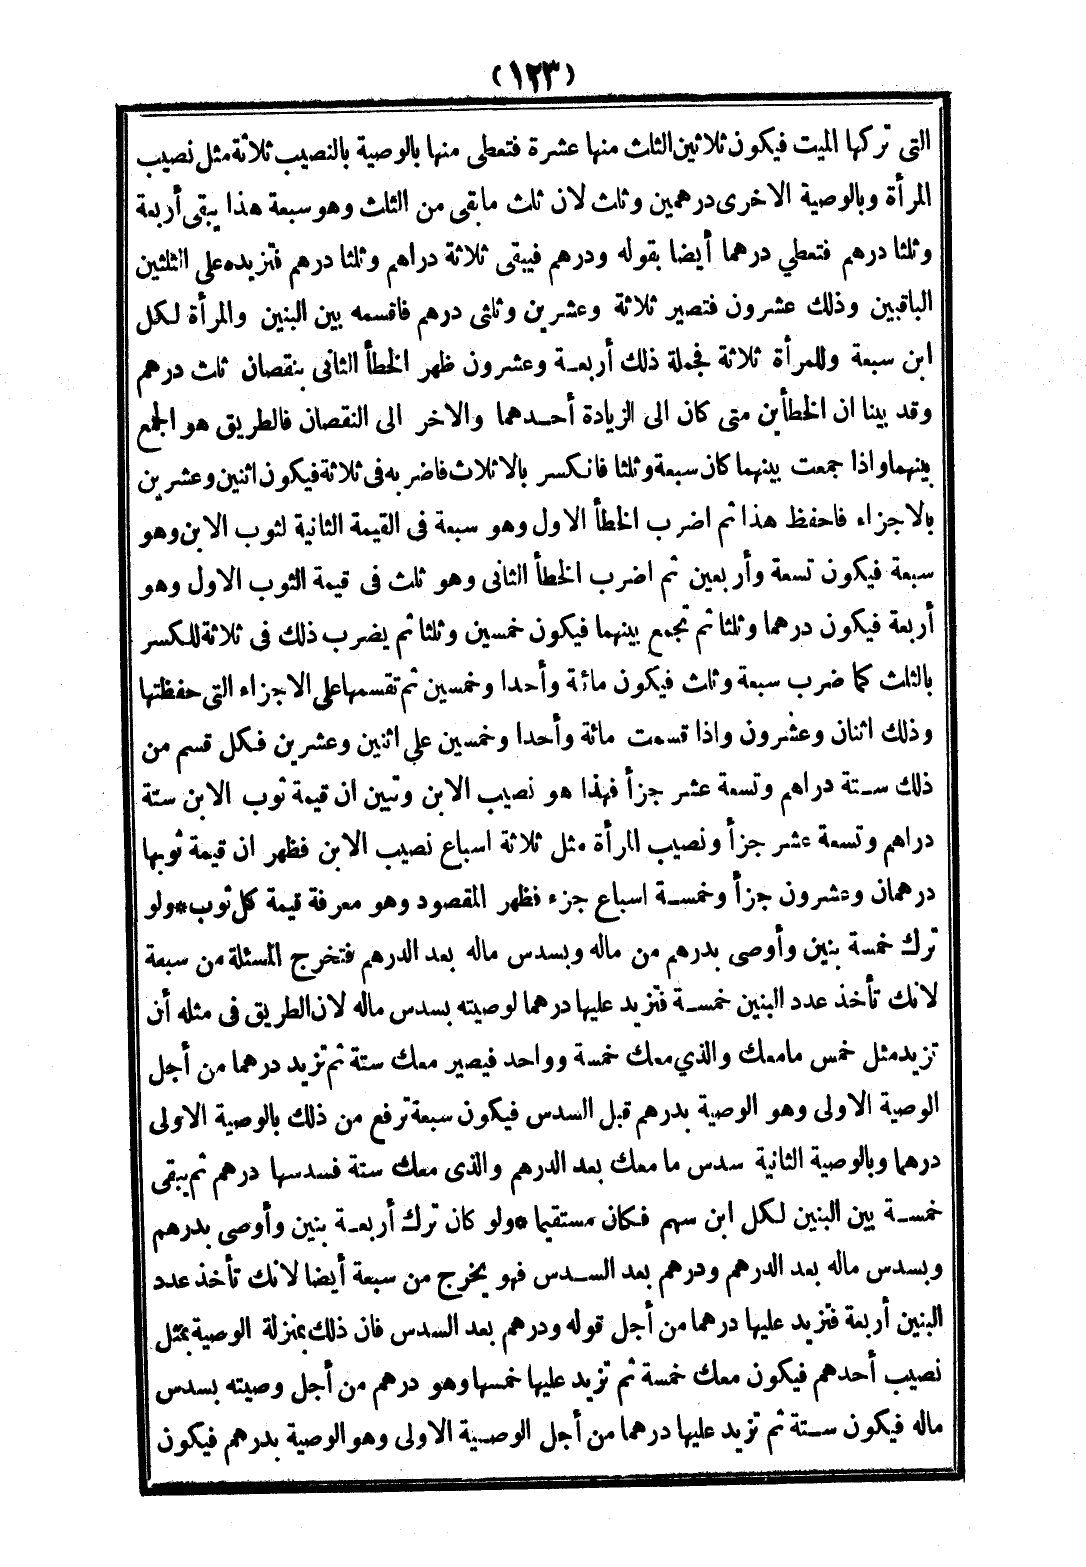 (١٢٣)
التى تركها الميت فيكون ثلاثين الثلث منها عشرة فتعطى منها بالوصية بالنصيب ثلاثة مثل نصيب
المرأة وبالوصية الاخرى درهمين وثلث لان ثلث مابقى من الثلث وهو سبعة هذا يبقى أربعة
وثلثا درهم فتعطي درهما أيضا بقوله ودرهم فيبقى ثلاثة دراهم وثلثا درهم فتزيده على الثلثين
الباقيين وذلك عشرون فتصير ثلاثة وعشرين وثلثى درهم فاقسمه بين البنين والمرأة لكل
ابن سبعة وللمرأة ثلاثة فجملة ذلك أربعـة وعشرون ظهر الخطأ الثانى بنقصان ثلث درهم
وقد بينا ان الخطأين متى كان الى الزيادة أحـدهما والاخر الى النقصان فالطريق هو الجمع
بينهما واذا جمعت بينهما كان سبعة وثلثا فانكسر بالاثلاث فاضربه فى ثلاثة فيكون اثنين وعشرين
بالاجزاء فاحفظ هذا ثم اضرب الخطأ الاول وهو سبعة فى القيمة الثانية لثوب الابن وهو
سبعة فيكون تسعة وأربعين ثم اضرب الخطأ الثانى وهو ثلث فى قيمة الثوب الاول وهو
أربعة فيكون درهما وثلثا ثم تجمع بينهما فيكون خمسين وثلثا ثم يضرب ذلك فى ثلاثة للكسر
بالثلث كما ضرب سبعة وثلث فيكون مائة وأحدا وخمسين ثم تقسمها على الاجزاء التى حفظتها
وذلك اثنان وعشرون واذا قسمت مائة وأحدا وخمسين علي اثنين وعشرين فكل قسم من
ذلك ستـة دراهم وتسعة عشر جزأ فهذا هو نصيب الابن وتبين ان قيمة ثوب الابن ستة
دراهم وتسعة عشر جزأ ونصيب المرأة مثل ثلاثة اسباع نصيب الابن فظهر ان قيمة ثوبها
درهمان وعشرون جزأ وخمسـة اسباع جزء فظهر المقصود وهو معرفة قيمة كل ثوب*ولو
ترك خمسة بنين وأوصى بدرهم من ماله وبسدس ماله بعد الدرهم فتخرج المسئلة من سبعة
لانك تأخذ عدد البنين خمسـة فتزيد عليها درهما لوصيته بسدس ماله لان الطريق فى مثله أن
تزيد مثل خمس مامعك والذي معك خمسة وواحد فيصير معك ستة ثم تزيد درهما من أجل
الوصية الاولى وهو الوصية بدرهم قبل السدس فيكون سبعة ترفع من ذلك بالوصية الاولى
درهما وبالوصية الثانية سدس ما معك بعد الدرهم والذى معك ستة فسدسها درهم ثم يبقى
خمسـة بين البنين لكل ابن سهم فكان مستقيما *ولو كان ترك أربعـة بنين وأوصى بدرهم
وبسدس ماله بعد الدرهم ودرهم بعد السـدس فهو يخرج من سبعة أيضا لانك تأخذ عدد
البنين أربعة فتزيد عليها درهما من أجل قوله ودرهم بعد السدس فان ذلك بمنزلة الوصية بمثل
نصيب أحدهم فيكون معك خمسة ثم تزيد عليها خمسها وهو درهم من أجل وصيته بسدس
ماله فيكون ستـة ثم تزيد عليها درهما من أجل الوصـية الاولى وهو الوصية بدرهم فيكون